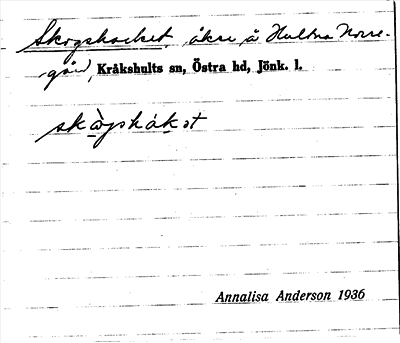 Skogshocket, åker å Hultna Norre-
gård, Kråkshults sn, Östra hd, Jönk. l.
skògshákət
Annalisa Anderson 1936